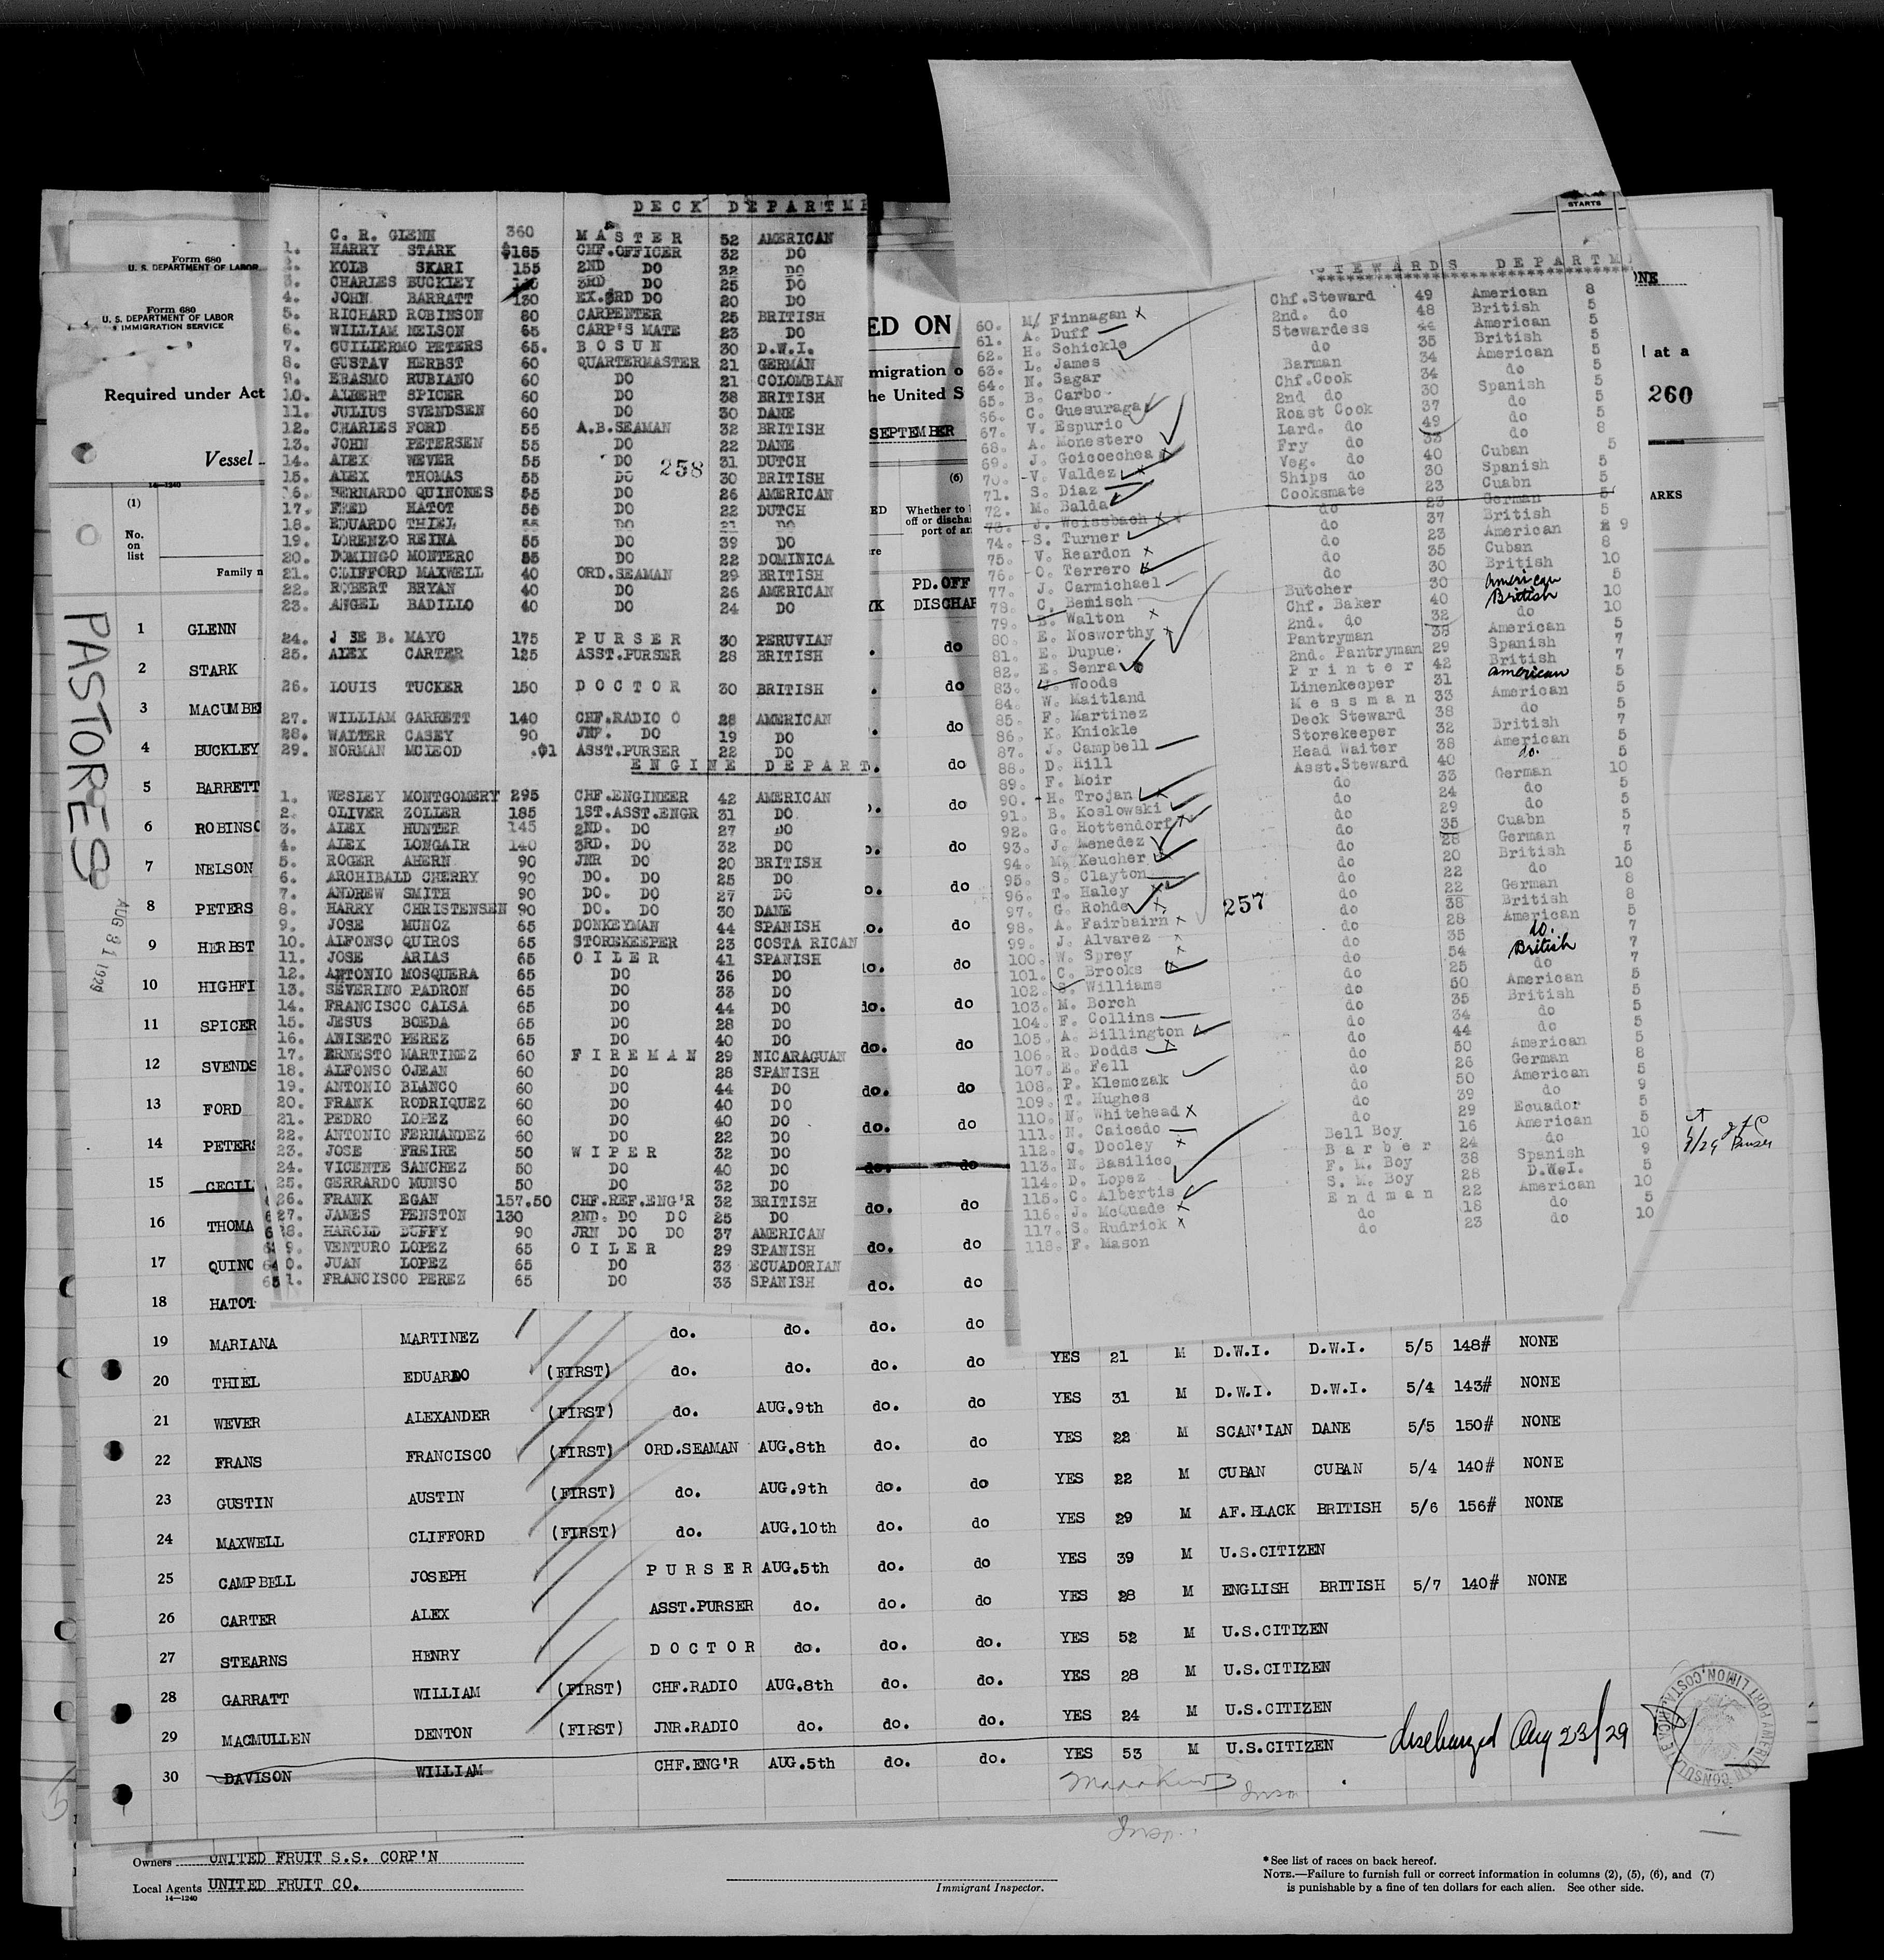 Form 680
U. S. DEPARTMENT OF LABOR
Form 680
U. S. DEPARTMENT OF LABOR
IMMIGRATION SERVICE
Required under Act
Vessel
14—1240
(1)
No.
on
list
Family n
PASTORES
AUG 31 1929
1 GLENN
2 STARK
3 MACUMBE
4 BUCKLEY
5 BARRETT
6 ROBINSO
7 NELSON
8 PETERS
9 HERBST
10 HIGHFI
11 SPICER
12 SVENDS
13 FORD
14 PETERS
15 CECIL
16 THOMA
17 QUINO
18 HATOT
DECK DEPARTME
C. R. GLENN 360 MASTER 52 AMERICAN
1. HARRY STARK $185 CHF.OFFICER 32 DO
2. KOLB SKARI 155 2ND DO 32 DO
3. CHARLES BUCKLEY 3RD DO 25 DO
4. JOHN BARRATT 130 EX.3RD DO 20 DO
5. RICHARD ROBINSON 80 CARPENTER 25 BRITISH
6. WILLIAM NELSON 65 CARP'S MATE 23 DO
7. GUILIERMO PETERS 65. BOSUN 30 D.W.I.
8. GUSTAV HERBST 60 QUARTERMASTER 21 GERMAN
9. ERASMO RUBIANO 60 DO 21 COLOMBIAN
10. ALBERT SPICER 60 DO 38 BRITISH
11. JULIUS SVENDSEN 60 DO 30 DANE
12. CHARLES FORD 55 A.B.SEAMAN 32 BRITISH
13. JOHN PETERSEN 55 DO 22 DANE
14. ALEX WEVER 55 DO 31 DUTCH
258
15. ALEX THOMAS 55 DO 30 BRITISH
16. BERNARDO QUINONES 55 DO 26 AMERICAN
17. FRED HATOT 55 DO 22 DUTCH
18. EDUARDO THIEL 55 DO 21 DO
19. LORENZO REINA 55 DO 39 DO
20. DOMINGO MONTERO 55 DO 22 DOMINICA
21. CLIFFORD MAXWELL 40 ORD.SEAMAN 29 BRITISH
22. ROBERT BRYAN 40 DO 26 AMERICAN
23. ANGEL BADILLO 40 DO 24 DO
24. J SE B. MAYO 175 PURSER 30 PERUVIAN
25. ALEX CARTER 125 ASST.PURSER 28 BRITISH
26. LOUIS TUCKER 150 DOCTOR 30 BRITISH
27. WILLIAM GARRETT 140 CHF.RADIO O 28 AMERICAN
28. WALTER CASEY 90 JNR. DO 19 DO
29. NORMAN MCLEOD .$1 ASST.PURSER 22 DO
ENGINE DEPART
1. WESLEY MONTGOMERY 295 CHF.ENGINEER 42 AMERICAN
2. OLIVER ZOLLER 185 1ST.ASST.ENGR 31 DO
3. ALEX HUNTER 145 2ND. DO 27 DO
4. ALEX LONGAIR 140 3RD. DO 32 DO
5. ROGER AHERN 90 JNR DO 20 BRITISH
6. ARCHIBALD CHERRY 90 DO. DO 25 DO
7. ANDREW SMITH 90 DO. DO 27 DO
8. HARRY CHRISTENSEN 90 DO. DO 30 DANE
9. JOSE MUNOZ 65 DONKEYMAN 44 SPANISH
10. ALFONSO QUIROS 65 STOREKEEPER 23 COSTA RICAN
11. JOSE ARIAS 65 OILER 41 SPANISH
12. ANTONIO MOSQUERA 65 DO 36 DO
13. SEVERINO PADRON 65 DO 33 DO
14. FRANCISCO CALSA 65 DO 44 DO
15. JESUS BOEDA 65 DO 28 DO
16. ANISETO PEREZ 65 DO 40 DO
17. ERNESTO MARTINEZ 60 FIREMAN 29 NICARAGUAN
18. ALFONSO OJEAN 60 DO 28 SPANISH
19. ANTONIO BLANCO 60 DO 44 DO
20. FRANK RODRIQUEZ 60 DO 40 DO
21. PEDRO LOPEZ 60 DO 40 DO
22. ANTONIO FERNANDEZ 60 DO 22 DO
23. JOSE FREIRE 50 WIPER 32 DO
24. VICENTE SANCHEZ 50 DO 40 DO
25. GERRARDO MUNSO 50 DO 32 DO
26. FRANK EGAN 157.50 CHF.REF.ENG'R 32 BRITISH
27. JAMES PENSTON 130 2ND. DO DO 25 DO
8. HAROLD DUFFY 90 JRN DO DO 37 AMERICAN
9. VENTURO LOPEZ 65 OILER 29 SPANISH
0. JUAN LOPEZ 65 DO 33 ECUADORIAN
1. FRANCISCO PEREZ 65 DO 33 SPANISH
ED ON
migration o
he United S
SEPTEMBER
(6)
Whether to
off or discha
port of ar
PD.OFF
DISCHAR
STARTS
STEWARDS DEPARTM
60. M/ Finnagan x Chf.Steward 49 American 8
61. A. Duff 2nd. do 48 British 5
62. H. Schickle Stewardess 44 American 5
63. L. James do 35 British 5
64. N. Sagar Barman 34 American 5
65. B. Carbo Chf.Cook 34 do 5
66. C. Guesuraga 2nd do 30 Spanish 5
67. V. Espurio Roast Cook 37 do 5
68. A. Monestero Lard. do 49 do 5
69. J. Goicoechea Fry do 33 do 8
70. V. Valdez Veg. do 40 Cuban 5
71. S. Diaz Ships do 30 Spanish 5
72. M. Balda Cooksmate 23 Cuabn 5
73. J. Weissbach do 23 German 5
74. S. Turner do 37 British 5
75. V. Reardon do 23 American 9
76. O. Terrero do 35 Cuban 8
77. J. Carmichael do 30 British 10
78. C. Bemisch Butcher 30 American 5
79. B. Walton Chf. Baker 40 British 10
80. E. Nosworthy 2nd. do 32 do 10
81. E. Dupue. Pantryman 38 American 5
82. E. Senra 2nd. Pantryman 29 Spanish 7
83. J. Woods Printer 42 British 7
84. W. Maitland Linenkeeper 31 American 5
85. F. Martinez Messman 33 American 5
86. K. Knickle Deck Steward 38 do 5
87. J. Campbell Storekeeper 32 British 7
88. D. Hill Head Waiter 38 American 5
89. F. Moir Asst.Steward 40 do. 5
90. H. Trojan do 33 German 10
91. B. Koslowski do 24 do 5
92. G. Hottendorf do 29 do 5
93. J. Menedez do 35 Cuabn 5
94. M. Keucher do 28 German 7
95. S. Clayton do 20 British 5
96. T. Haley do 22 do 10
97. G. Rohde do 22 German 8
98. A. Fairbairn do 38 British 8
257
99. J. Alvarez do 28 American 5
100. W. Sprey do 35 do. 7
101. C. Brooks do 54 British 7
102. S. Williams do 25 do 7
103. M. Borch do 50 American 5
104. F. Collins do 35 British 5
105. A. Billington do 34 do 5
106. R. Dodds do 44 do 5
107. E. Fell do 50 American 5
108. P. Klemczak do 26 German 8
109. T. Hughes do 50 American 5
110. N. Whitehead do 39 do 9
111. N. Caicedo do 29 Ecuador 5
112. G. Dooley Bell Boy 16 American 5
113. N. Basilico Barber 24 do 10
114. D. Lopez F. M. Boy 38 Spanish 9
115. C. Albertis S. M. Boy 28 D.W.I. 5
116. J. McQuade Endman 22 American 10
117. S. Rudrick do 18 do 5
118. F. Mason do 23 do 10
ONE
l at a
260
ARKS
19 MARIANA MARTINEZ do. do. do. do
20 THIEL EDUARDO (FIRST) do. do. do. do YES 21 M D.W.I. D.W.I. 5/5 148# NONE
21 WEVER ALEXANDER (FIRST) do. AUG.9th do. do YES 31 M D.W.I. D.W.I. 5/4 143# NONE
22 FRANS FRANCISCO (FIRST) ORD.SEAMAN AUG.8th do. do YES 22 M SCAN'IAN DANE 5/5 150# NONE
23 GUSTIN AUSTIN (FIRST) do. AUG.9th do. do YES 22 M CUBAN CUBAN 5/4 140# NONE
24 MAXWELL CLIFFORD (FIRST) do. AUG.10th do. do YES 29 M AF.BLACK BRITISH 5/6 156# NONE
25 CAMPBELL JOSEPH PURSER AUG.5th do. do YES 39 M U.S.CITIZEN
26 CARTER ALEX ASST.PURSER do. do. do YES 28 M ENGLISH BRITISH 5/7 140# NONE
27 STEARNS HENRY DOCTOR do. do. do. YES 52 M U.S.CITIZEN
28 GARRATT WILLIAM (FIRST) CHF.RADIO AUG.8th do. do. YES 28 M U.S.CITIZEN
29 MACMULLEN DENTON (FIRST) JNR.RADIO do. do. do. YES 24 M U.S.CITIZEN
30 DAVISON WILLIAM CHF.ENG'R AUG.5th do. do. YES 53 M U.S.CITIZEN discharged Aug 23/29
AMERICAN CONSULATE PORT LIMON, COSTA RICA
Owners UNITED FRUIT S.S. CORP'N
Local Agents UNITED FRUIT CO.
14—1240
Immigrant Inspector.
*See list of races on back hereof.
NOTE.—Failure to furnish full or correct information in columns (2), (5), (6), and (7)
is punishable by a fine of ten dollars for each alien. See other side.